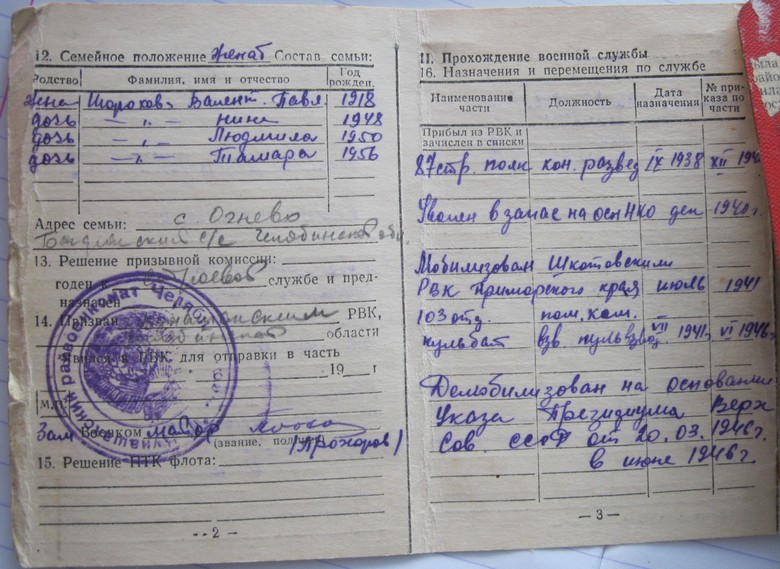 12. Семейное положение женат Состав семьи:
Родство Фамилия, имя и отчество Год рожден.
жена Шорохов. Валент. Павл 1918
дочь —„— Нина 1948
дочь —„— Людмила 1950
дочь —„— Тамара 1956
Адрес семьи: с. Огнево
с/с Челябинской обл.
13. Решение призывной комиссии:
годен к строевой службе и пред-
назначен
14. Призван РВК,
области
явился в РВК для отправки в часть
19 г
М.
Зам Военком майор
(звание, подпись)
(Прохоров)
15. Решение ПТК флота:
- 2 -
II. Прохождение военной службы
16. Назначения и перемещения по службе
Наименование части Должность Дата назначения № приказа по части
Прибыл из РВК и
зачислен в списки
87 стр. полк кон. развед IX 1938 XII 194
Уволен в запас на осн НКО ден 1940 г.
Мобилизован Шкотовским
РВК Приморского края июль 1941
103 отд. пом. ком.
пульбат взв. пульвзвод VII 1941 г. VI 1946 г.
Демобилизован на основании
Указа Президиума Верх
Сов. СССР от 20.03.1946 г.
в июне 1946 г.
- 3 -